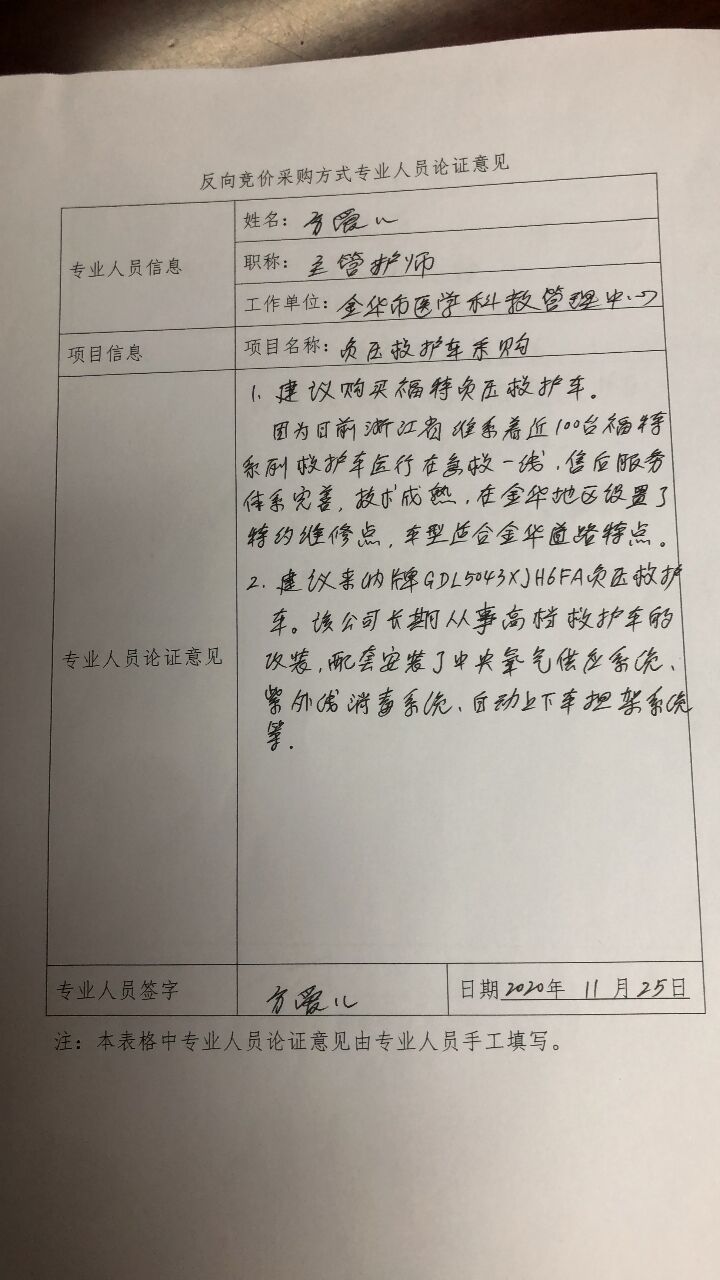 反向竞价采购方式专业人员论证意见
专业人员信息
姓名：方爱儿
职称：主管护师
工作单位：金华市医学科教管理中心
项目信息
项目名称：负压救护车采购
专业人员论证意见
1. 建议购买福特负压救护车。
因为目前浙江省维系着近100台福特
系列救护车运行在急救一线，售后服务
体系完善，技术成熟，在金华地区设置了
特约维修点，车型适合金华道路特点。
2. 建议采纳牌GDL5043XJH6FA负压救护
车。该公司长期从事高档救护车的
改装，配套安装了中央氧气供应系统、
紫外线消毒系统、自动上下车担架系统
等.
专业人员签字
方爱儿
日期2020年 11月25日
注：本表格中专业人员论证意见由专业人员手工填写。